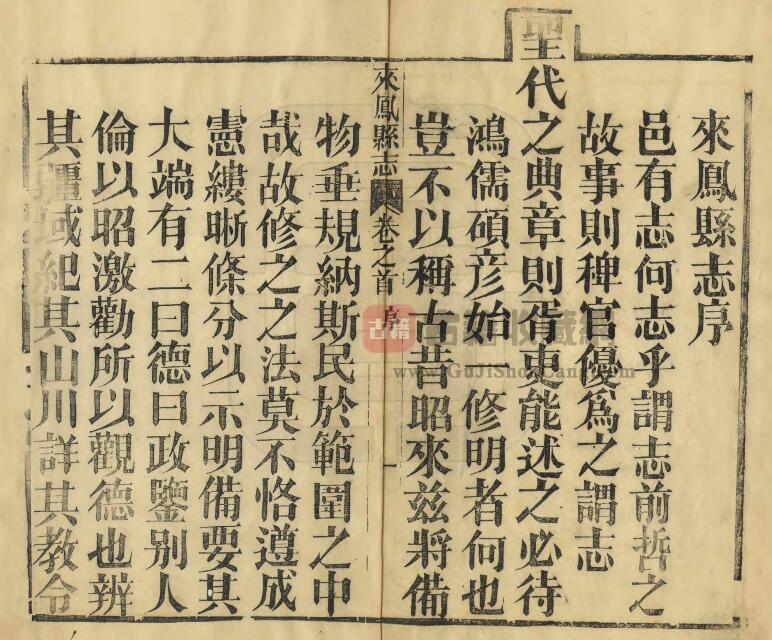 來鳳縣志序
邑有志何志乎謂志前哲之
故事則稗官優爲之謂志
聖代之典章則胥吏能述之必待
鴻儒碩彦始一修明者何也
豈不以稱古昔昭來兹將備
來鳳縣志 卷之首 序 一
物垂規納斯民於範圍之中
哉故修之之法莫不恪遵成
憲縷晰條分以示明備要其
大端有二曰德曰政鑒别人
倫以昭激勸所以觀德也辨
其疆域紀其山川詳其教令
古籍
古籍收藏網
www.GuJiShouCang.com